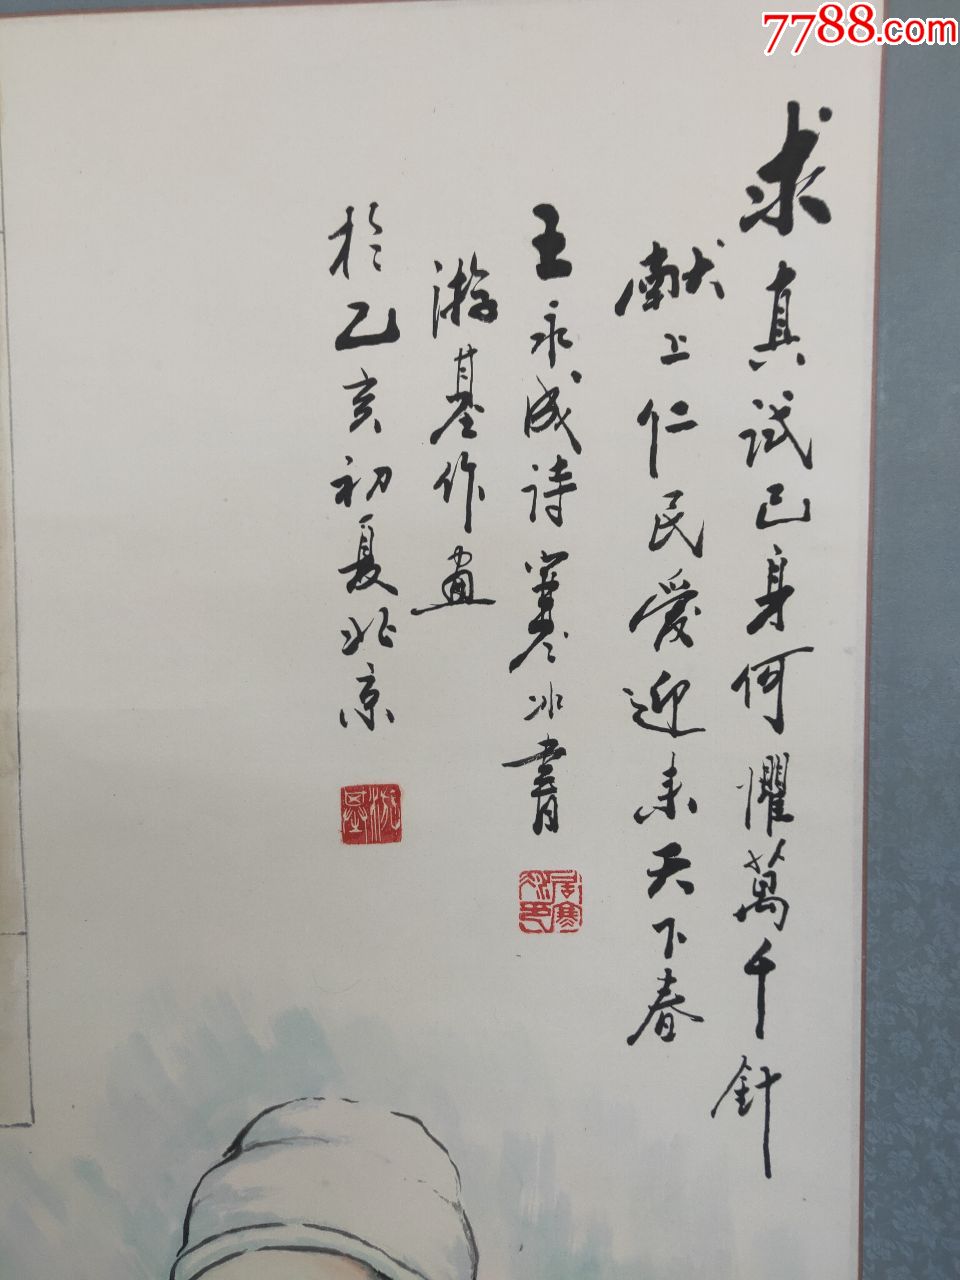 7788.com
求真試己身何懼萬千針
献上仁民爱迎来天下春
王永成诗寒冰書
游基作画
於乙亥初夏北京
游基